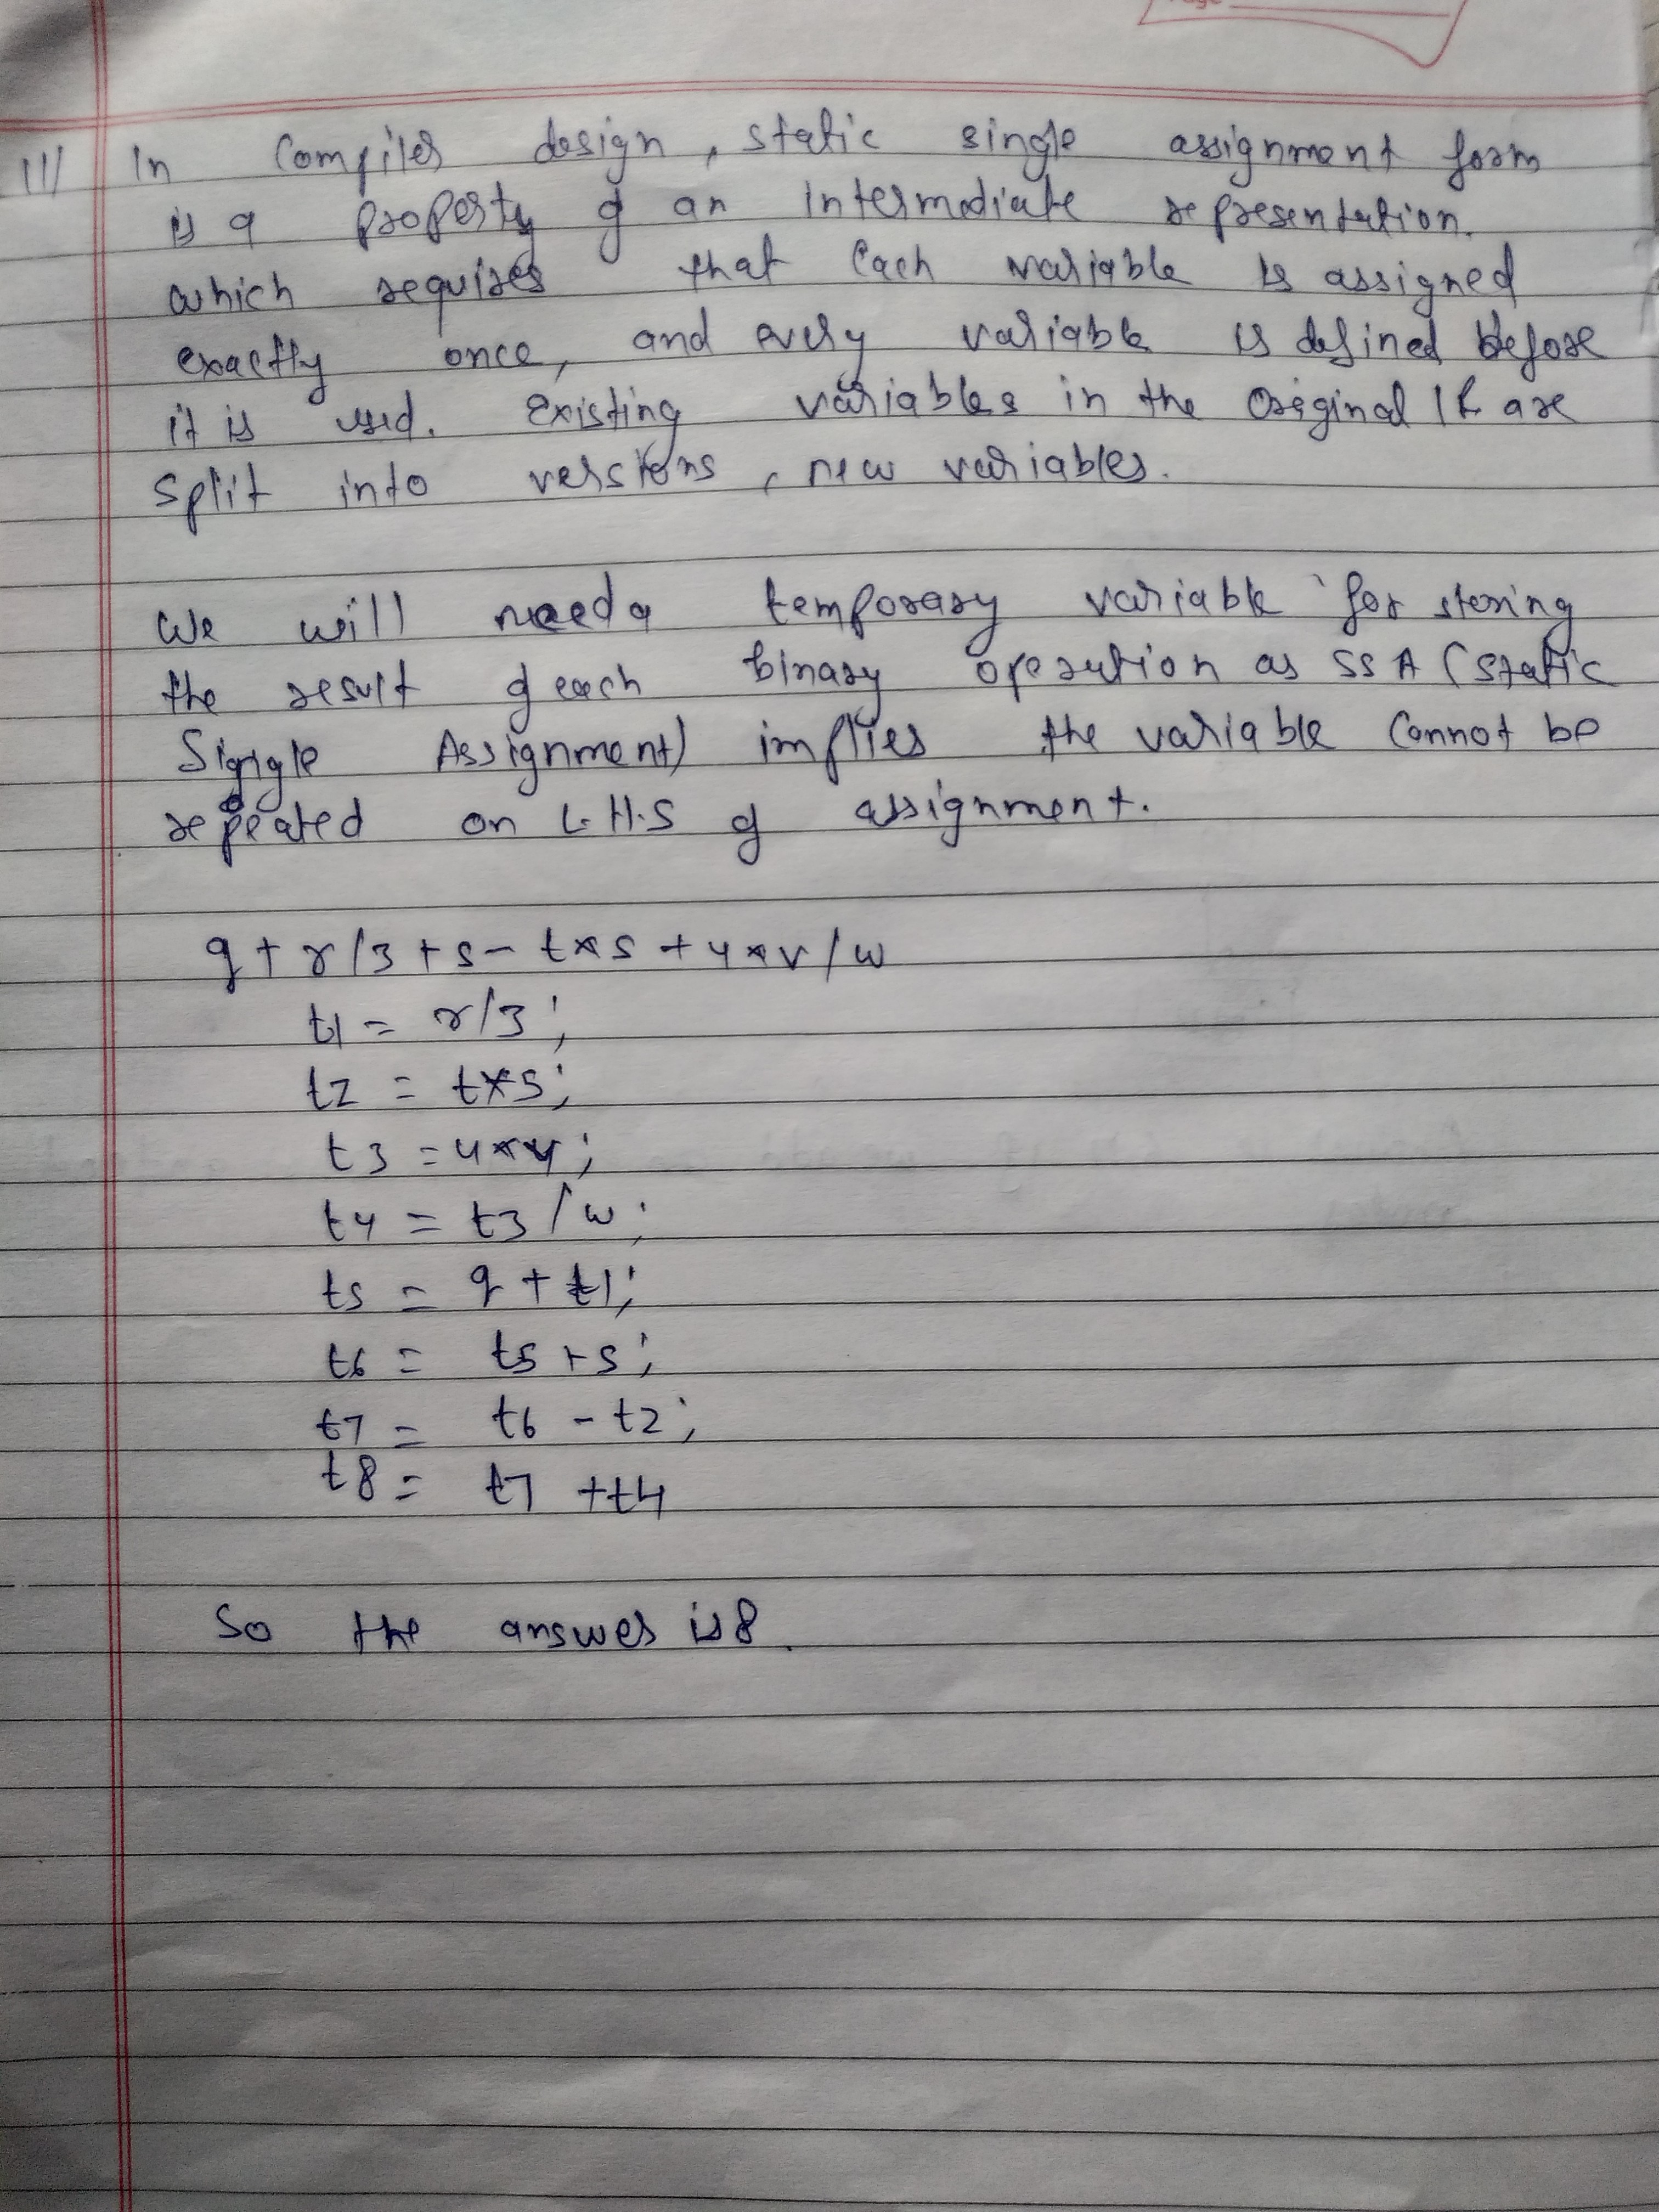 11/ In Compiler design, static single assignment form
is a property of an intermediate representation.
which requires that each variable is assigned
exactly once, and every variable is defined before
it is used. Existing variables in the original IR are
split into versions, new variables.
We will need a temporary variable for storing
the result of each binary operation as SSA (Static
Single Assignment) implies the variable cannot be
repeated on L.H.S of assignment.
q + r/3 + s - t*s + 4*v/w
t1 = r/3;
t2 = t*s;
t3 = 4*v;
t4 = t3/w;
t5 = q + t1;
t6 = t5 + s;
t7 = t6 - t2;
t8 = t7 + t4
So the answer is 8.